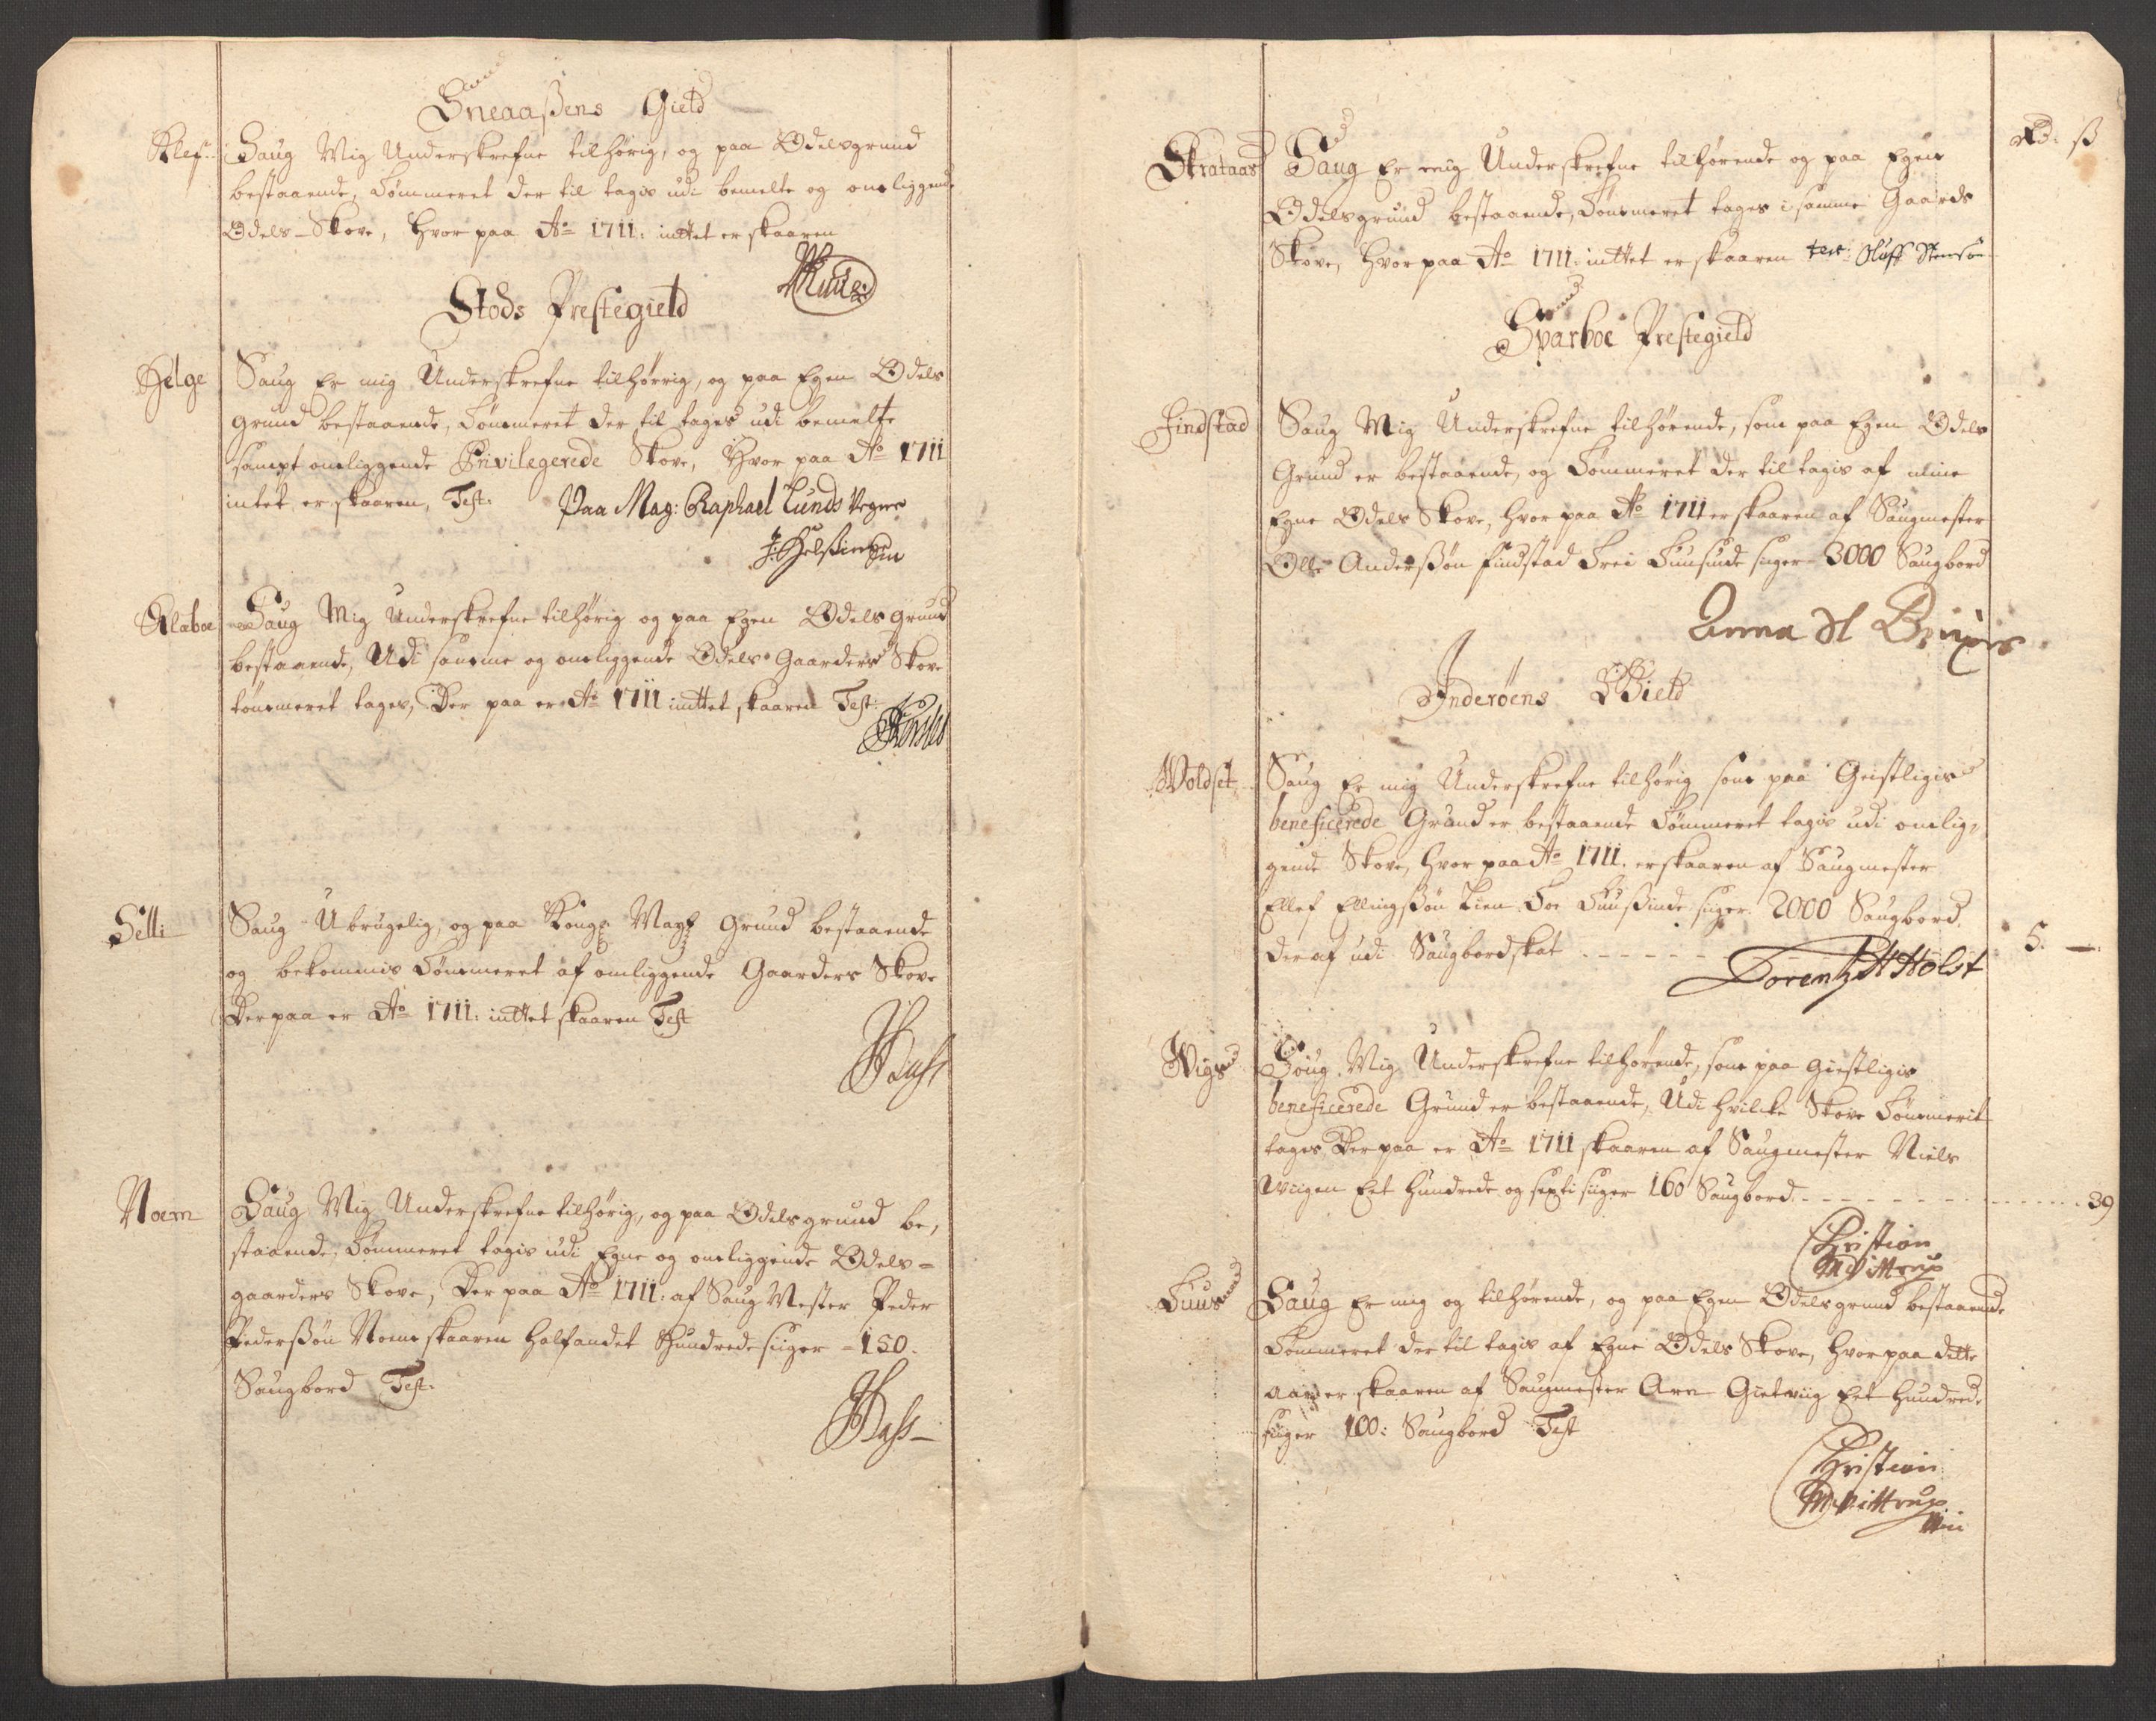 Sneaaßens Gield
Klef Saug Mig Underskrefne tilhørig, og paa Odelsgrund
bestaaende, Tømmeret der til tages udi bemelte og omliggende
Odels-Skove, Hvor paa Ao 1711: inttet er skaaren
Stods Prestegield
Helge Saug Er mig Underskrefne tilhørrig, og paa Egen Odels
grund bestaaende, Tømmeret der til tages udi bemelte
sampt omliggende Privilegerede Skove, Hvor paa Ao 1711
intet er skaaren, Test: Paa Mag: Raphael Lunds Vegne
Klæboe Saug Mig Underskrefne tilhørig og paa Egen Odels grund
bestaaende, Udi samme og omliggende Odels Gaarders Skove
tømmeret tages, Der paa er Ao 1711 inttet skaaren Test:
Selli Saug Ubrugelig, og paa Kongl: Mayt: Grund bestaaende
og bekommis Tømmeret af omliggende Gaarders Skove
Der paa er Ao 1711: inttet skaaren Test
Noem Saug Mig Underskrefne tilhørig, og paa Odelsgrund be,
staaende, Tømmeret tagis udi Egne og omliggende Odels-
gaarders Skove, Der paa Ao 1711: af Saug Mester Peder
Pederßøn Noem skaaren halfandet Hundrede siger - 150.
Saugbord Test:
Rd: ß
Strataas Saug Er mig Underskrefne tilhørende og paa Egen
Odelsgrund bestaaende, Tømmeret tages i samme Gaards
Skove, Hvor paa Ao 1711: inttet er skaaren test: Oluff Stensøn
Sparboe Prestegield
Findstad Saug Mig Underskrefne tilhørende, som paa Egen Odels
Grund er bestaaende, og Tømmeret der til tagis af mine
Egne Odels Skove, hvor paa Ao 1711 er skaaren af Saugmester
Olle Anderßøn Findstad Trei Tuusinde siger - 3000 Saugbord
Anna Sl Brixes
Inderøens Gield
Woldset Saug Er mig Underskrefne tilhørig som paa Geistligis
beneficerede Grund er bestaaende Tømmeret tagis udi omlig,
gende Skove, hvor paa Ao 1711. er skaaren af Saugmester
Ellef Ellingßøn Lien. Toe Tuußinde siger. 2000 Saugbord
Der af udi Saugbordskat - - - - - 5. —
Lorentz H Holst
Wigs Saug Mig Underskrefne tilhørende, som paa Giestligis
beneficerede Grund er bestaaende, Udi hvilcke Skove Tømmerit
tages Der paa er Ao 1711 skaaren af Saugmester Niels
Wiigen Eet hundrede og sexti siger 160 Saugbord - - - - 39
Christian
Wittrup
Tuus Saug Er mig og tilhørende, og paa Egen Odels grund bestaaende
Tømmeret der til tagis af Egne Odels Skove, hvor paa dette
aar er skaaren af Saugmester Arn Gietwiig Eet hundrede
siger 100: Saugbord Test
Christian
Wittrup